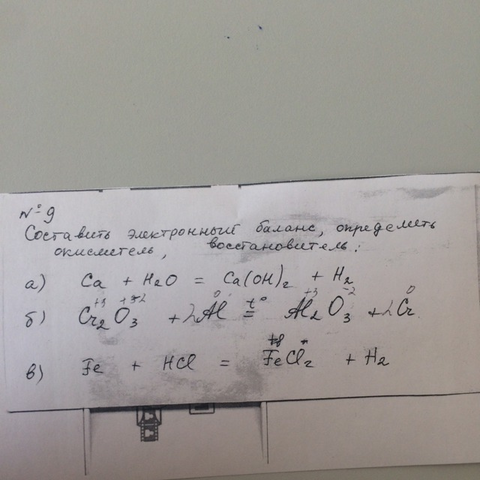 № 9
Составить электронный баланс, определить
окислитель, восстановитель:
а) Ca + H₂O = Ca(OH)₂ + H₂
+3 -2 0 +3 -2 0
б) Cr₂O₃ + 2Al t° = Al₂O₃ + 2Cr
в) Fe + HCl = FeCl₂ + H₂